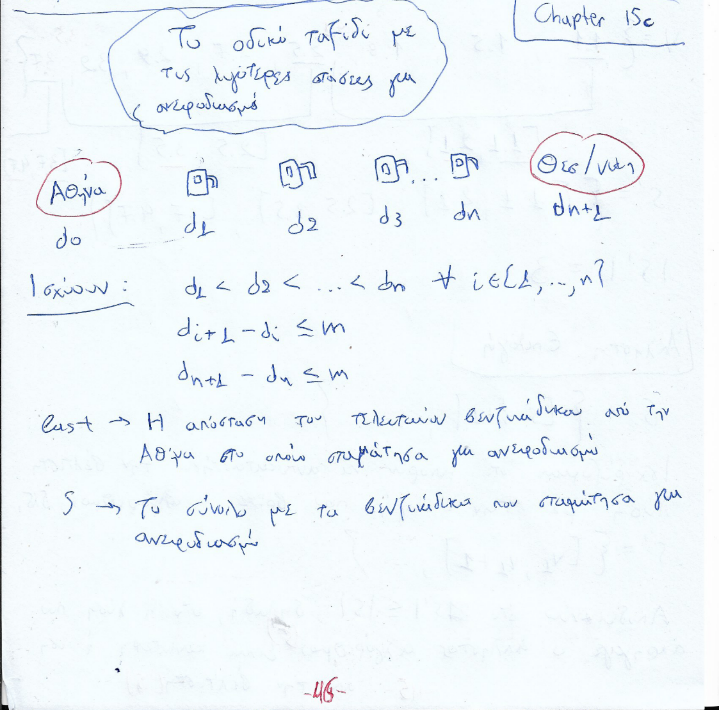 Chapter 15c
Το οδικό ταξίδι με
τις λιγότερες στάσεις για
ανεφοδιασμό
Αθήνα ... Θεσ/νίκη
d0 d1 d2 d3 dn dn+1
Ισχύουν: d1 < d2 < ... < dn ∀ i∈{1,..,n}
di+1 - di ≤ m
dn+1 - dn ≤ m
last → Η απόσταση του τελευταίου βενζινάδικου από την
Αθήνα στο οποίο σταμάτησα για ανεφοδιασμό
S → Το σύνολο με τα βενζινάδικα που σταμάτησα για
ανεφοδιασμό